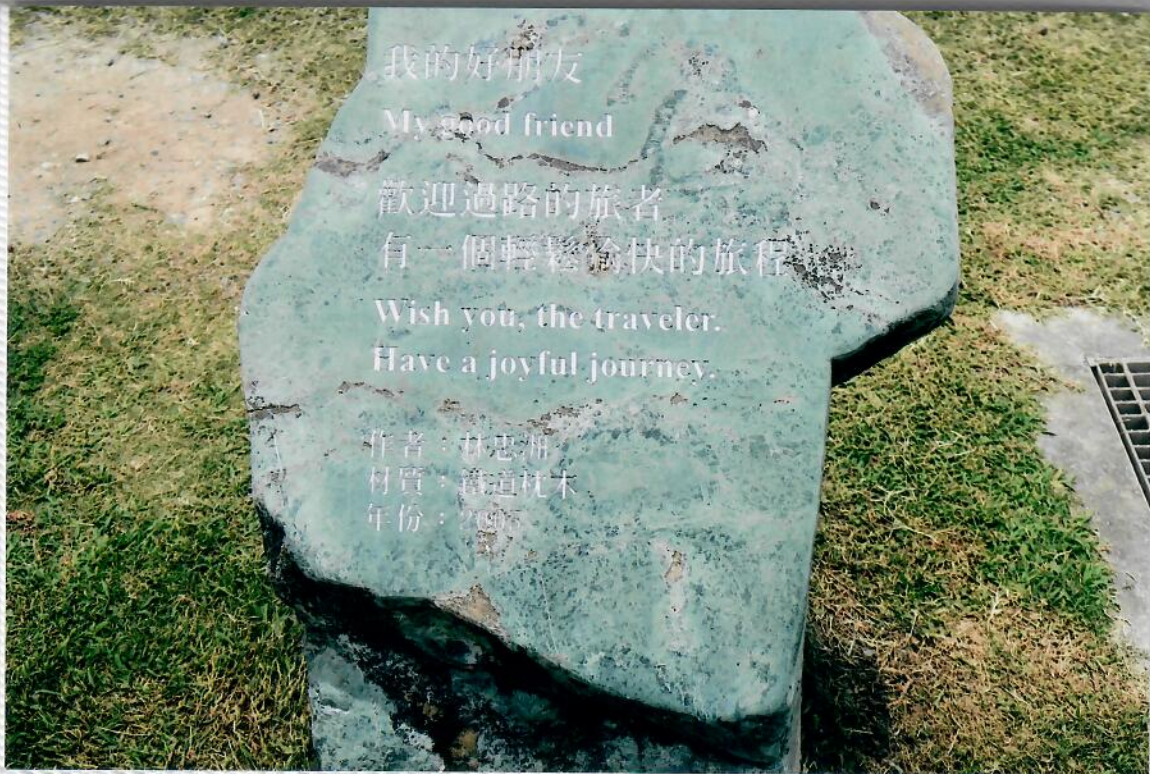 我的好朋友
My good friend
歡迎過路的旅者
有一個輕鬆愉快的旅程
Wish you, the traveler.
Have a joyful journey.
作者：林忠洲
材質：鐵道枕木
年份：2005